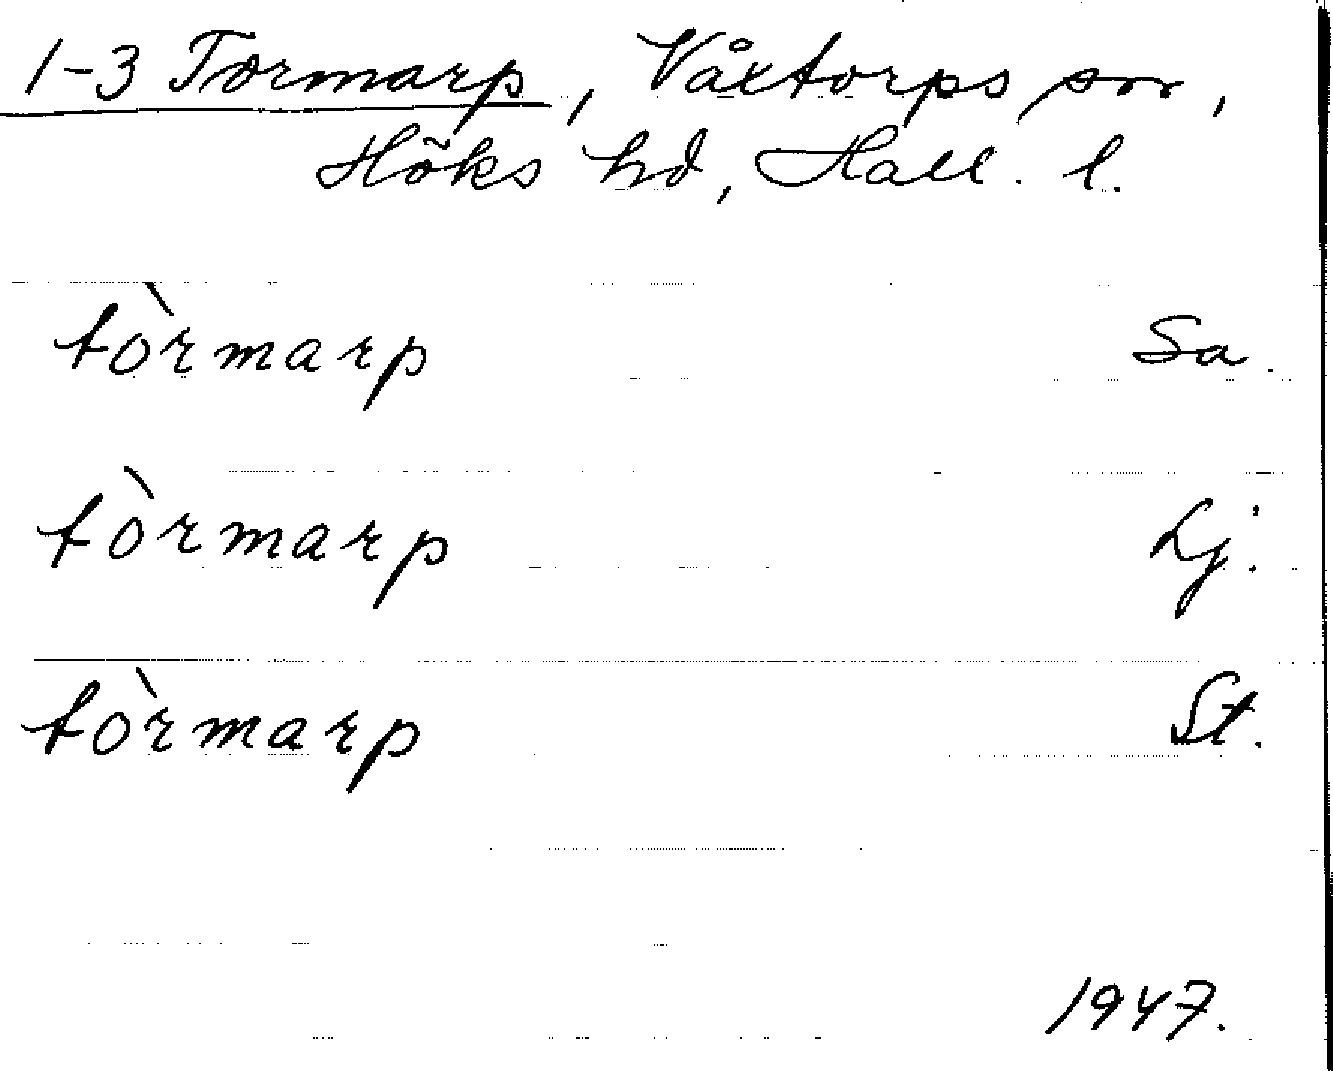 1-3 Tormarp, Våxtorps sn,
Höks hd, Hall. l.
tòrmarp Sa.
tòrmarp Lj.
tòrmarp St.
1947.